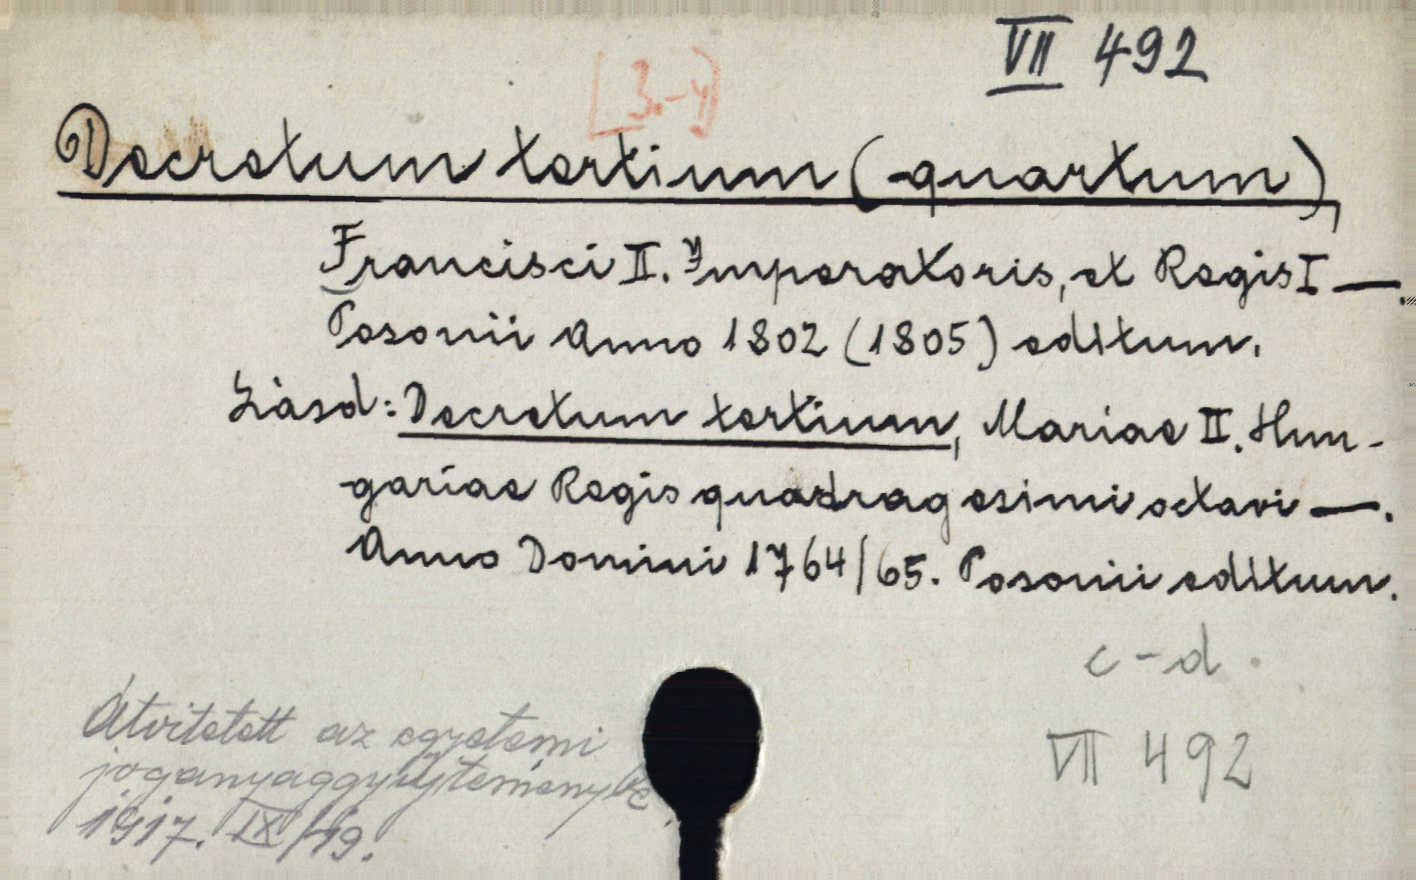 VII 492
[3.-4]
Decretum tertium (quartum),
Francisci II. Imperatoris, et Regis I —.
Posonii Anno 1802 (1805) editum.
Lásd: Decretum tertium, Mariae II. Hun-
gariae Regis quadragesimi octavi —.
Anno Domini 1764/65. Posonii editum.
c-d.
VII 492
Átvitetett az egyetemi
joganyaggyűjteménybe
1917. IX/19.